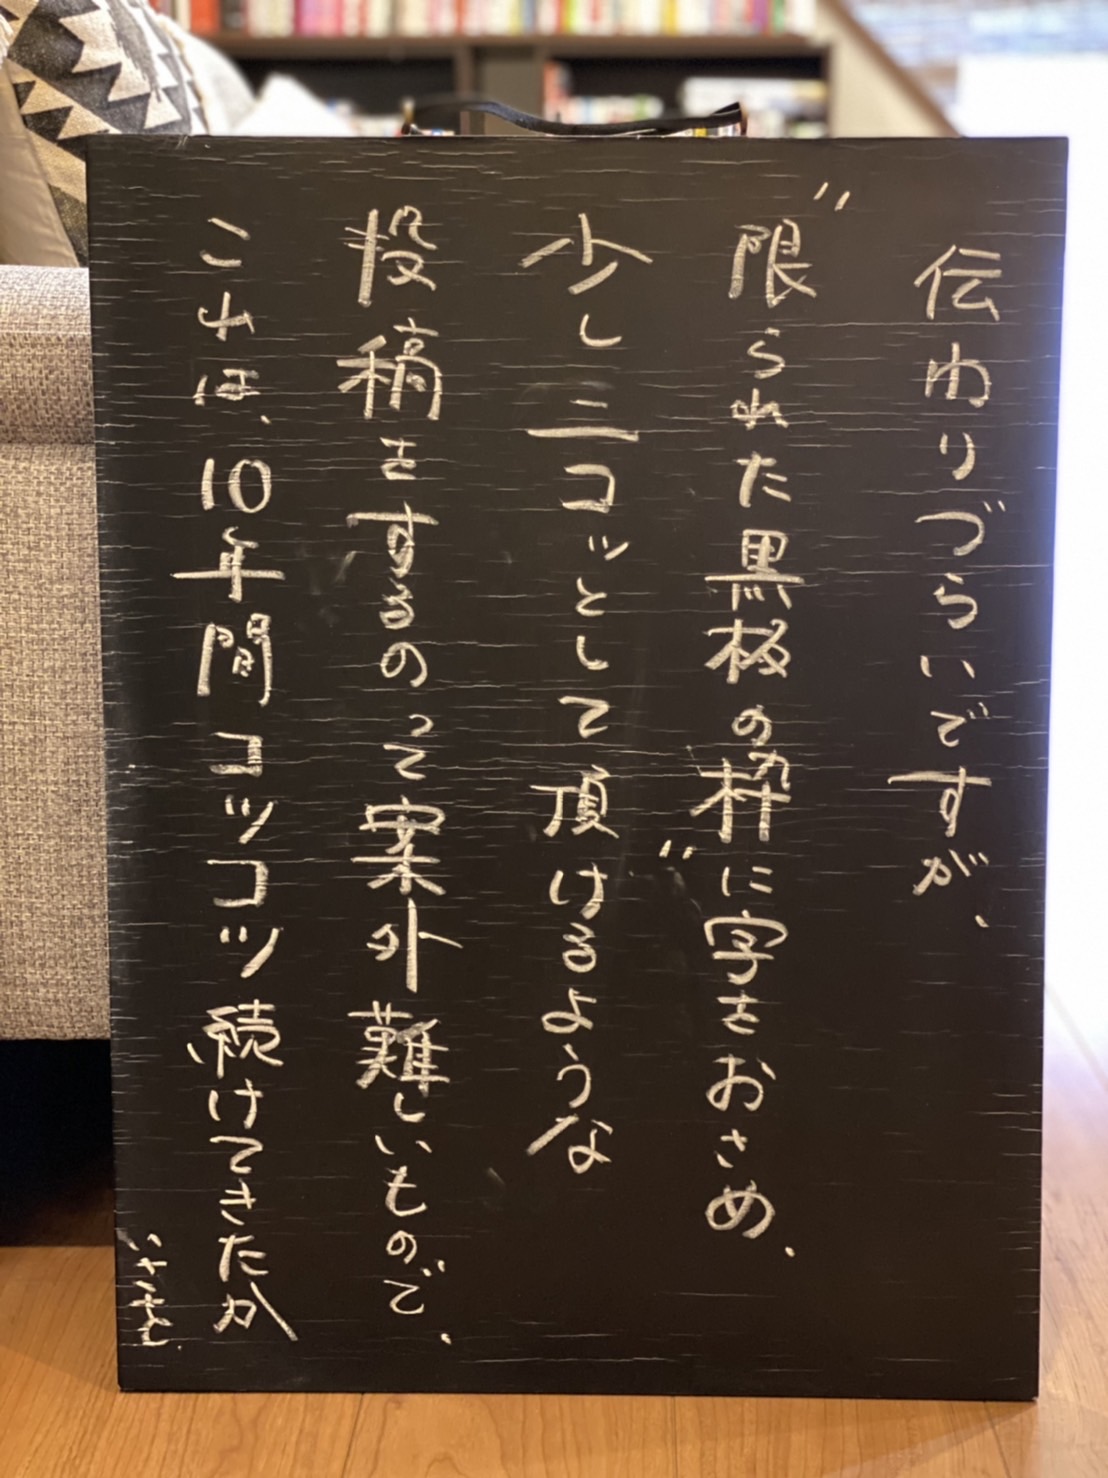 伝わりづらいですが、
"限られた黒板の枠"に字をおさめ、
少しニコッとして頂けるような
投稿をするのって案外難しいもので、
これは、10年間コツコツ続けてきたか